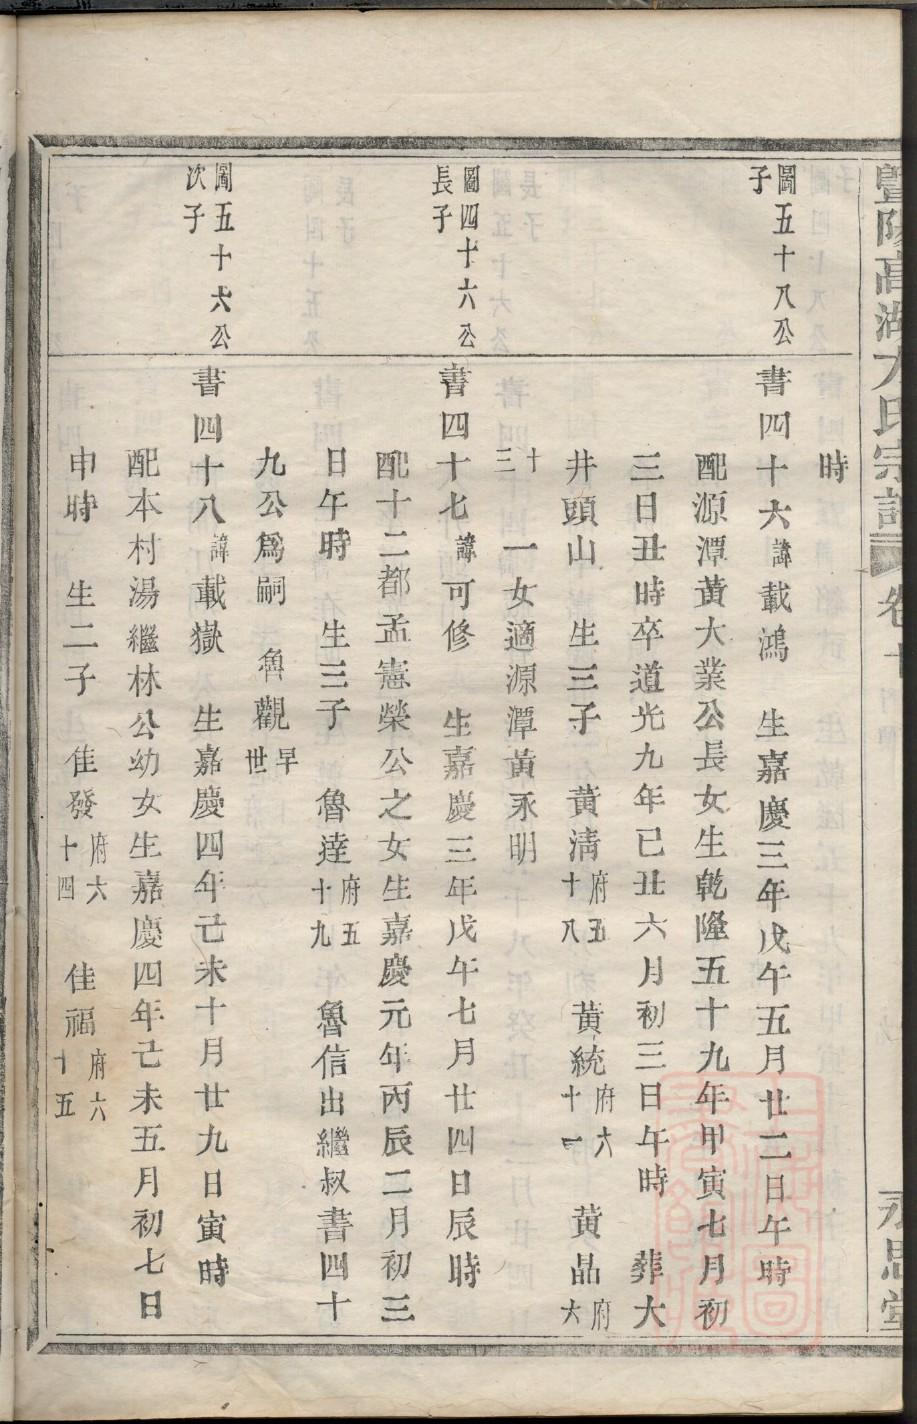 暨陽高湖方氏宗譜 卷十 永思堂
時
圖五十八公
子
書四十六諱載鴻 生嘉慶三年戊午五月廿二日午時
配源潭黃大業公長女生乾隆五十九年甲寅七月初
三日丑時卒道光九年已丑六月初三日午時 葬大
井頭山 生三子 黃淸府五十八 黃統府六十一 黃品府六
十三 一女適源潭黃永明
圖四十六公
長子
書四十七諱可修 生嘉慶三年戊午七月廿四日辰時
配十二都孟憲榮公之女生嘉慶元年丙辰二月初三
日午時 生三子 魯達府五十九 魯信出繼叔書四十
九公爲嗣 魯觀早世
圖五十六公
次子
書四十八諱載嶽 生嘉慶四年己未十月廿九日寅時
配本村湯繼林公幼女生嘉慶四年己未五月初七日
申時 生二子 佳發府六十四 佳福府六十五